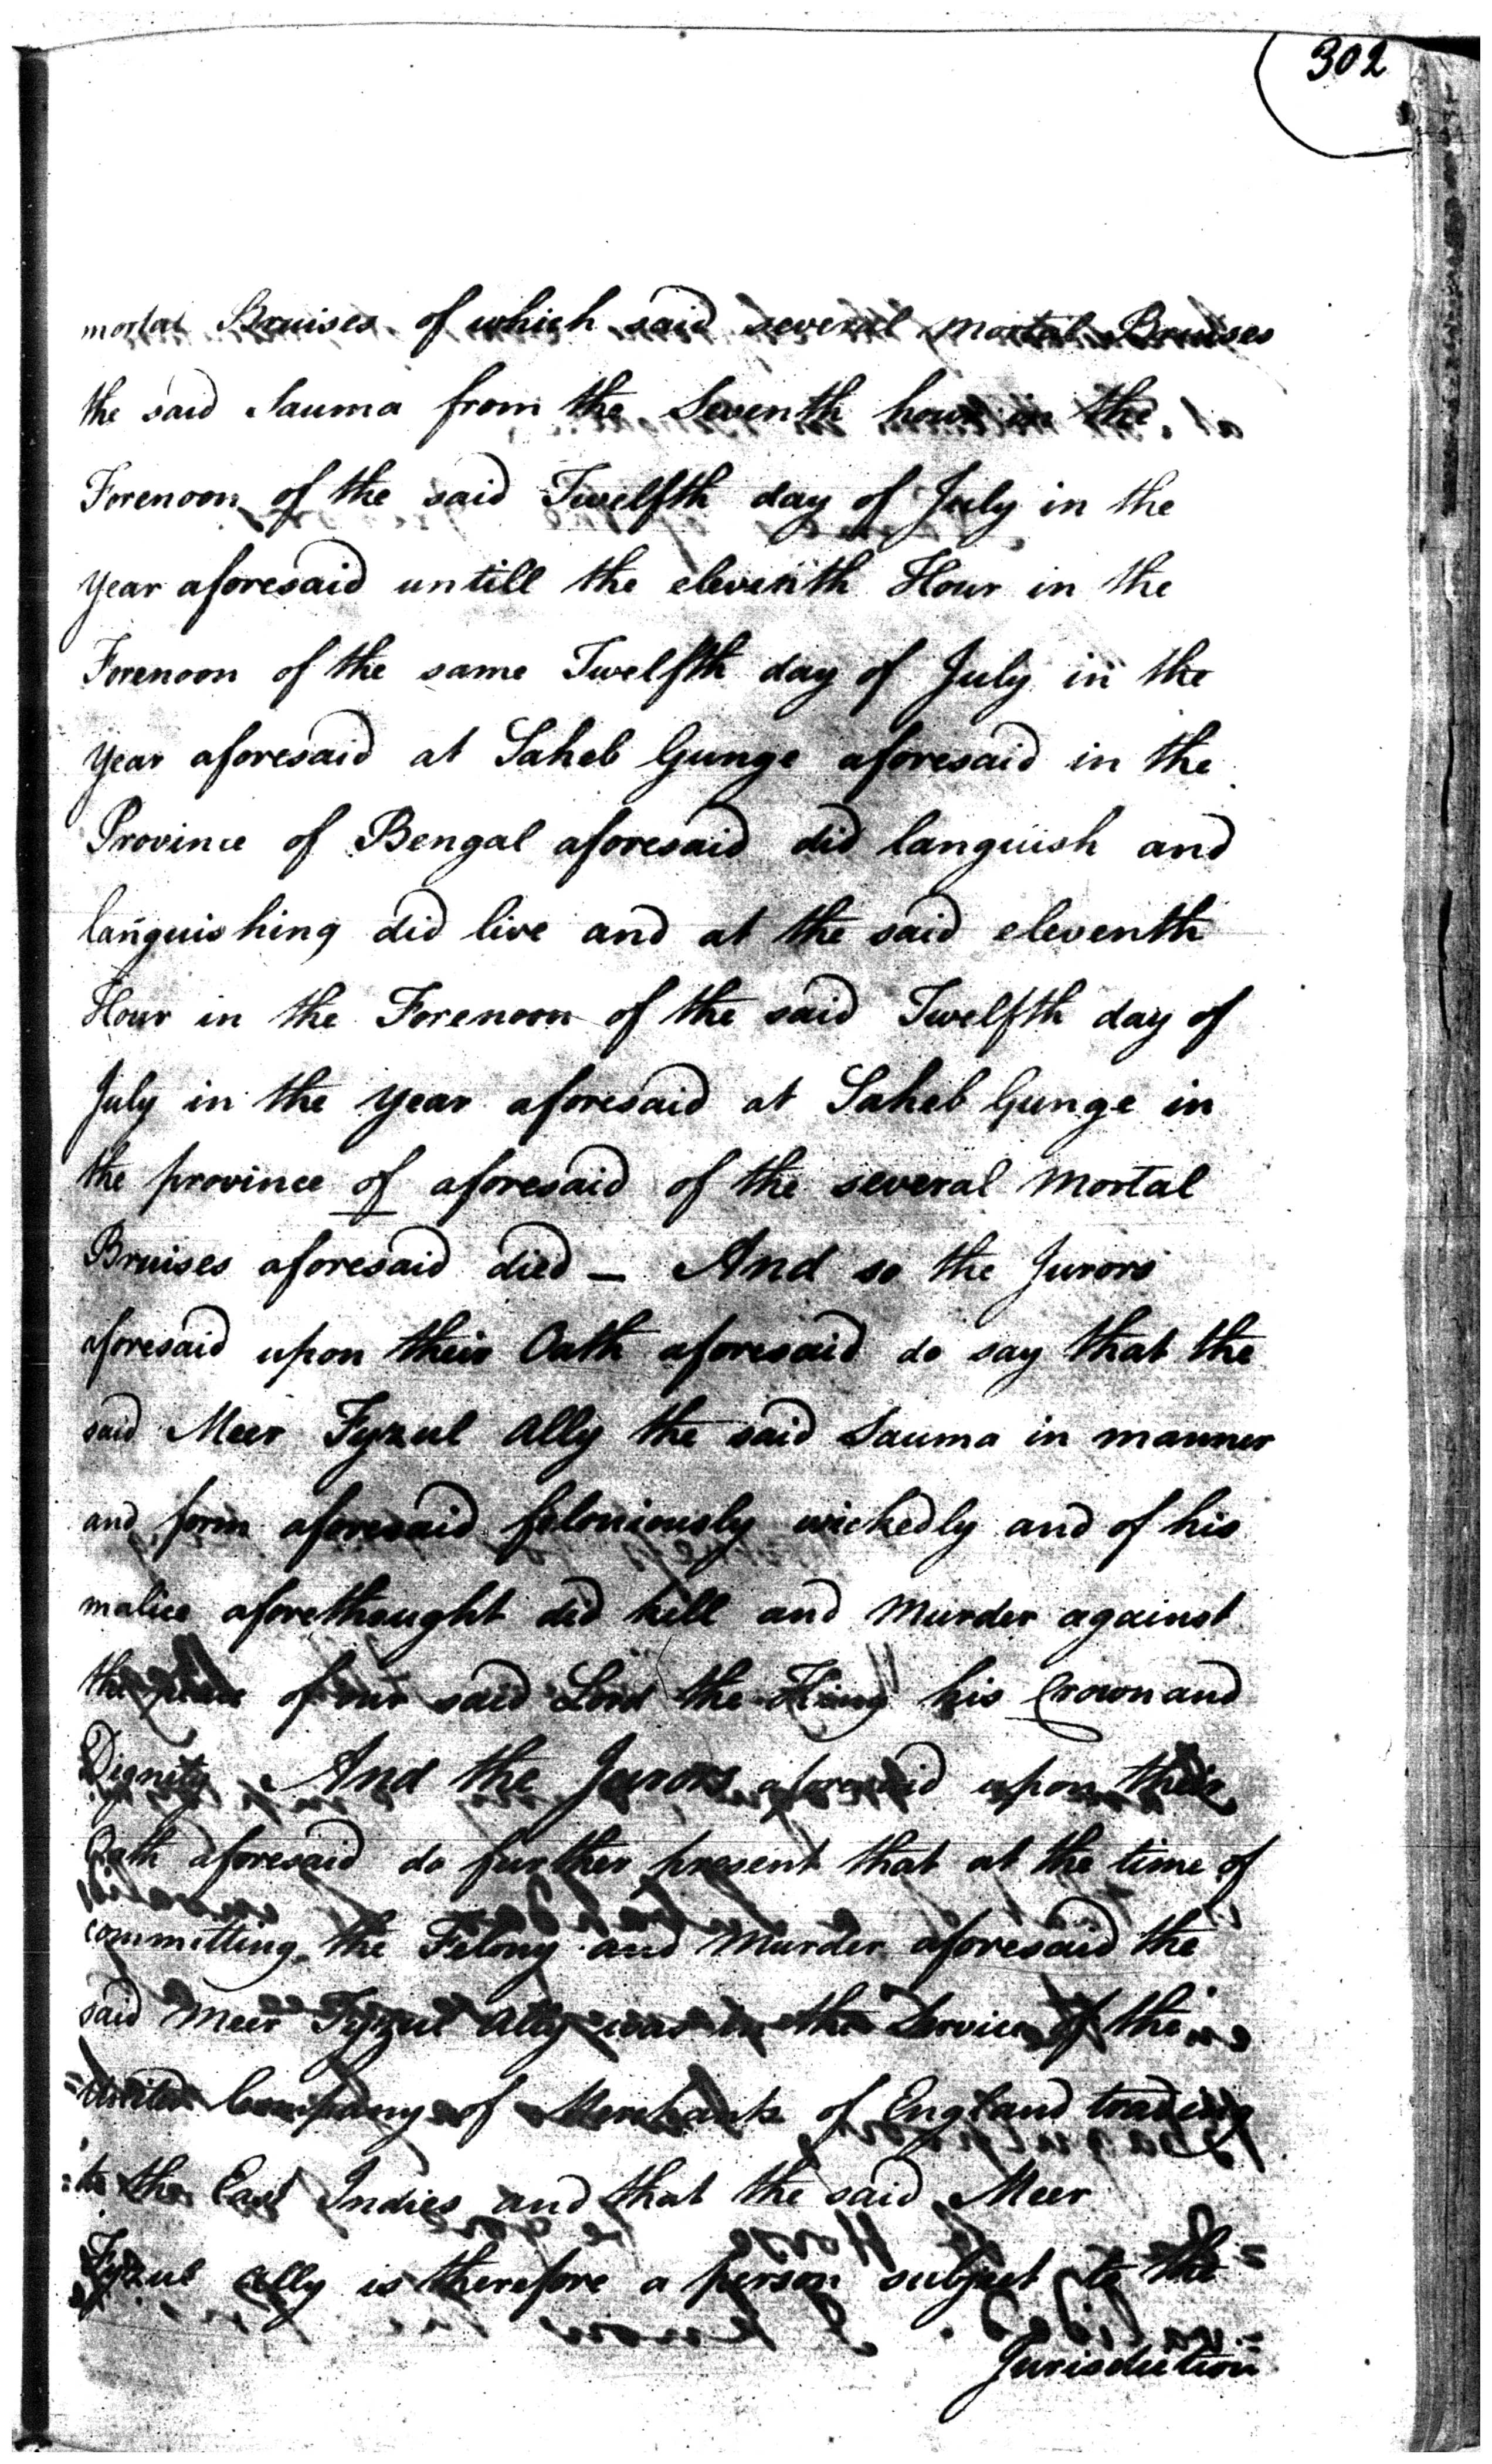 302
mortal Bruises of which said several mortal Bruises
the said Sauma from the Seventh hour in the
Forenoon of the said Twelfth day of July in the
Year aforesaid untill the eleventh Hour in the
Forenoon of the same Twelfth day of July in the
Year aforesaid at Saheb Gunge aforesaid in the
Province of Bengal aforesaid did languish and
languishing did live and at the said eleventh
Hour in the Forenoon of the said Twelfth day of
July in the Year aforesaid at Saheb Gunge in
the province of aforesaid of the several Mortal
Bruises aforesaid died — And so the Jurors
aforesaid upon their Oath aforesaid do say that the
said Meer Fyzul Ally the said Sauma in manner
and form aforesaid feloniously wickedly and of his
malice aforethought did kill and Murder against
the peace of our said Lord the King his Crown and
Dignity And the Jurors aforesaid upon their
Oath aforesaid do further present that at the time of
committing the Felony and Murder aforesaid the
said Meer Fyzul Ally was in the Service of the
United Company of Merchants of England trading
to the East Indies and that the said Meer
Fyzul Ally is therefore a person subject to the
Jurisdiction